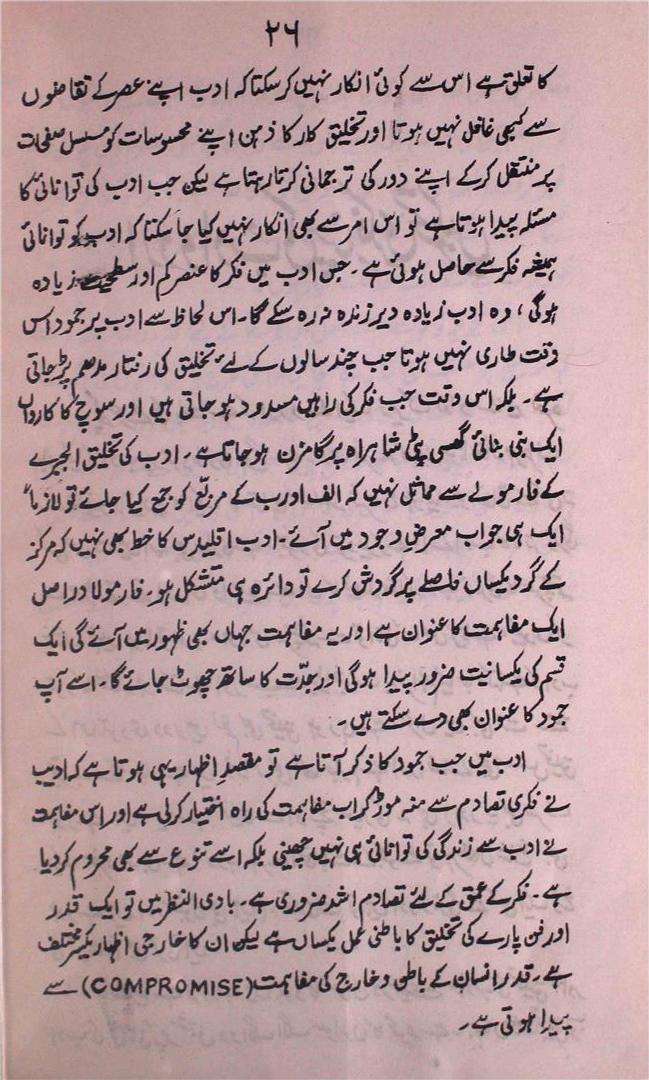 ۲۶
کا تعلق ہے اس سے کوئی انکار نہیں کرسکتا کہ ادب اپنے عصر کے تقاضوں
سے کبھی غافل نہیں ہوتا اور تخلیق کار کا ذہن اپنے محسوسات کو مسلسل صفحات
پر منتقل کرکے اپنے دور کی ترجمانی کرتا رہتا ہے لیکن جب ادب کی توانائی کا
مسئلہ پیدا ہوتا ہے تو اس امر سے بھی انکار نہیں کیا جا سکتا کہ ادب کو توانائی
ہمیشہ فکر سے حاصل ہوئی ہے۔ جس ادب میں فکر کا عنصر کم اور سطحیت زیادہ
ہوگی، وہ ادب زیادہ دیر زندہ نہ رہ سکے گا۔ اس لحاظ سے ادب پر جمود اس
وقت طاری نہیں ہوتا جب چند سالوں کے لئے تخلیق کی رفتار مدھم پڑ جاتی
ہے۔ بلکہ اس وقت جب فکر کی راہیں مسدود ہو جاتی ہیں اور سوچ کا کارواں
ایک بنی بنائی گھسی پٹی شاہراہ پر گامزن ہو جاتا ہے۔ ادب کی تخلیق الجبرے
کے فارمولے سے مماثل نہیں کہ الف اور ب کے مربع کو جمع کیا جائے تو لازماً
ایک ہی جواب معرضِ وجود میں آئے۔ ادب اقلیدس کا خط بھی نہیں کہ مرکز
کے گرد یکساں فاصلے پر گردش کرے تو دائرہ ہی متشکل ہو۔ فارمولا دراصل
ایک مفاہمت کا عنوان ہے اور یہ مفاہمت جہاں بھی ظہور میں آئے گی ایک
قسم کی یکسانیت ضرور پیدا ہوگی اور جدّت کا ساتھ چھوٹ جائے گا۔ اسے آپ
جمود کا عنوان بھی دے سکتے ہیں۔
ادب میں جب جمود کا ذکر آتا ہے تو مقصدِ اظہار یہی ہوتا ہے کہ ادیب
نے فکری تصادم سے منہ موڑ کر اب مفاہمت کی راہ اختیار کرلی ہے اور اس مفاہمت
نے ادب سے زندگی کی توانائی ہی نہیں چھینی بلکہ اسے تنوع سے بھی محروم کردیا
ہے۔ فکر کے عمق کے لئے تصادم اشد ضروری ہے۔ بادی النظر میں تو ایک قدر
اور فن پارے کی تخلیق کا باطنی عمل یکساں ہے لیکن ان کا خارجی اظہار یکسر مختلف
ہے۔ قدر انسان کے باطن و خارج کی مفاہمت (COMPROMISE) سے
پیدا ہوتی ہے۔